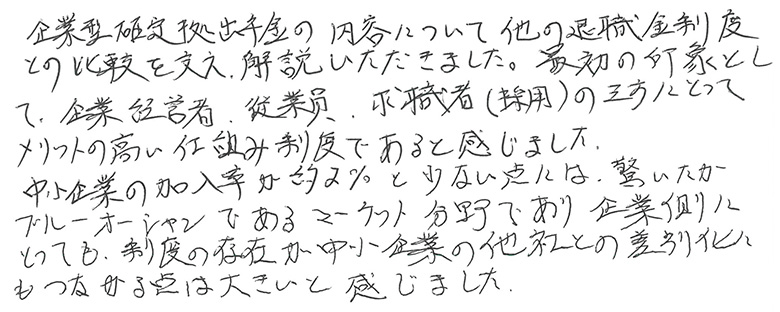 企業型確定拠出年金の内容について他の退職金制度
との比較を交え、解説いただきました。最初の印象とし
て、企業経営者、従業員、求職者(採用)の三方にとって
メリットの高い仕組み制度であると感じました。
中小企業の加入率が約2%と少ない点には、驚いたが
ブルーオーシャンであるマーケット分野であり企業側に
とっても、制度の存在が中小企業の他社との差別化に
もつながる点は大きいと感じました。